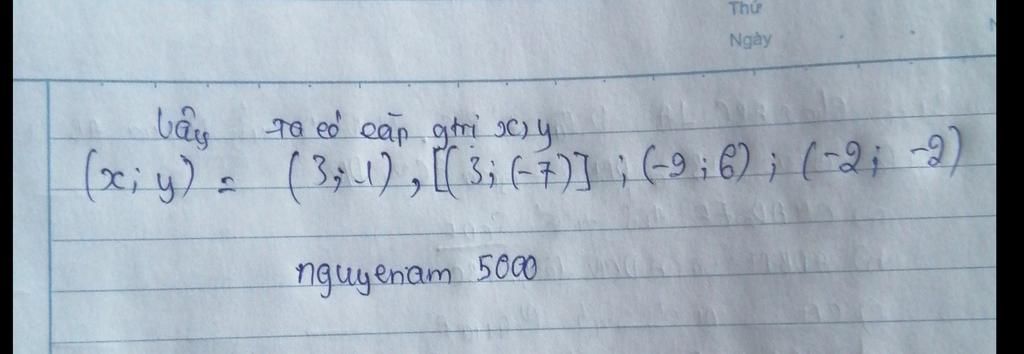 Thứ
Ngày
Vậy ta có cặp gtri x, y
(x; y) = (3; -1), [(3; (-7)] ; (-2; 6) ; (-2; -2)
nguyenam 5000